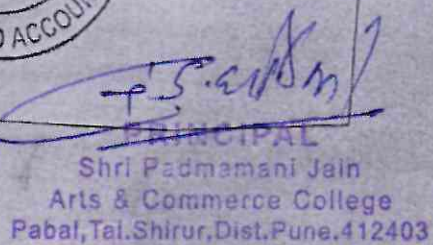 D ACCOU
PRINCIPAL
Shri Padmamani Jain
Arts & Commerce College
Pabal,Tal.Shirur,Dist.Pune.412403